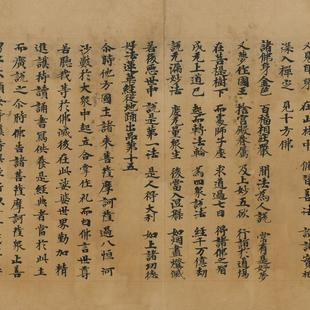 又見自身 在山林中 修習善法 證諸實相
深入禪定 見十方佛
諸佛身金色 百福相莊嚴 聞法為人說 常有是好夢
又夢作國王 捨宮殿眷屬 及上妙五欲 行詣於道場
在菩提樹下 而處師子座 求道過七日 得諸佛之智
成无上道已 起而轉法輪 為四眾說法 經千万億劫
說无漏妙法 度无量眾生 後當入涅槃 如烟盡燈滅
若後惡世中 說是第一法 是人得大利 如上諸功德
妙法蓮華經從地踊出品第十五
尒時他方國土諸來菩薩摩訶薩過八恒河
沙數於大眾中起立合掌作礼而白佛言世尊
若聽我等於佛滅後在此娑婆世界勤加精
進護持讀誦書寫供養是經典者當於此土
而廣說之尒時佛告諸菩薩摩訶薩眾止善